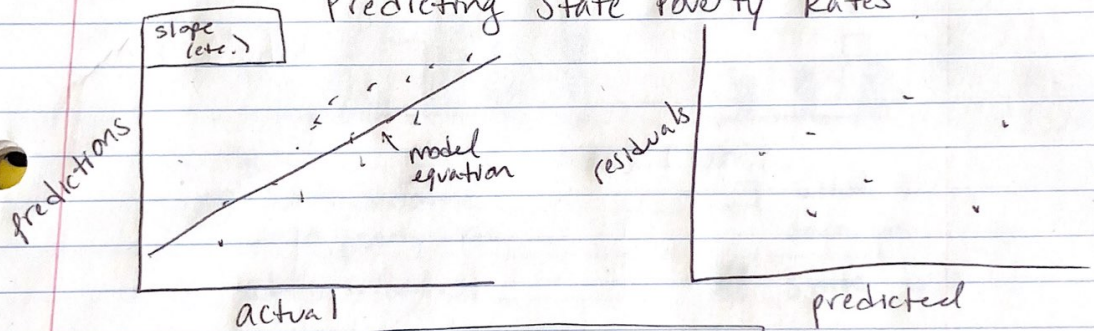 Predicting State Poverty Rates
slope
(etc.)
predictions
model
equation
actual
residuals
predicted